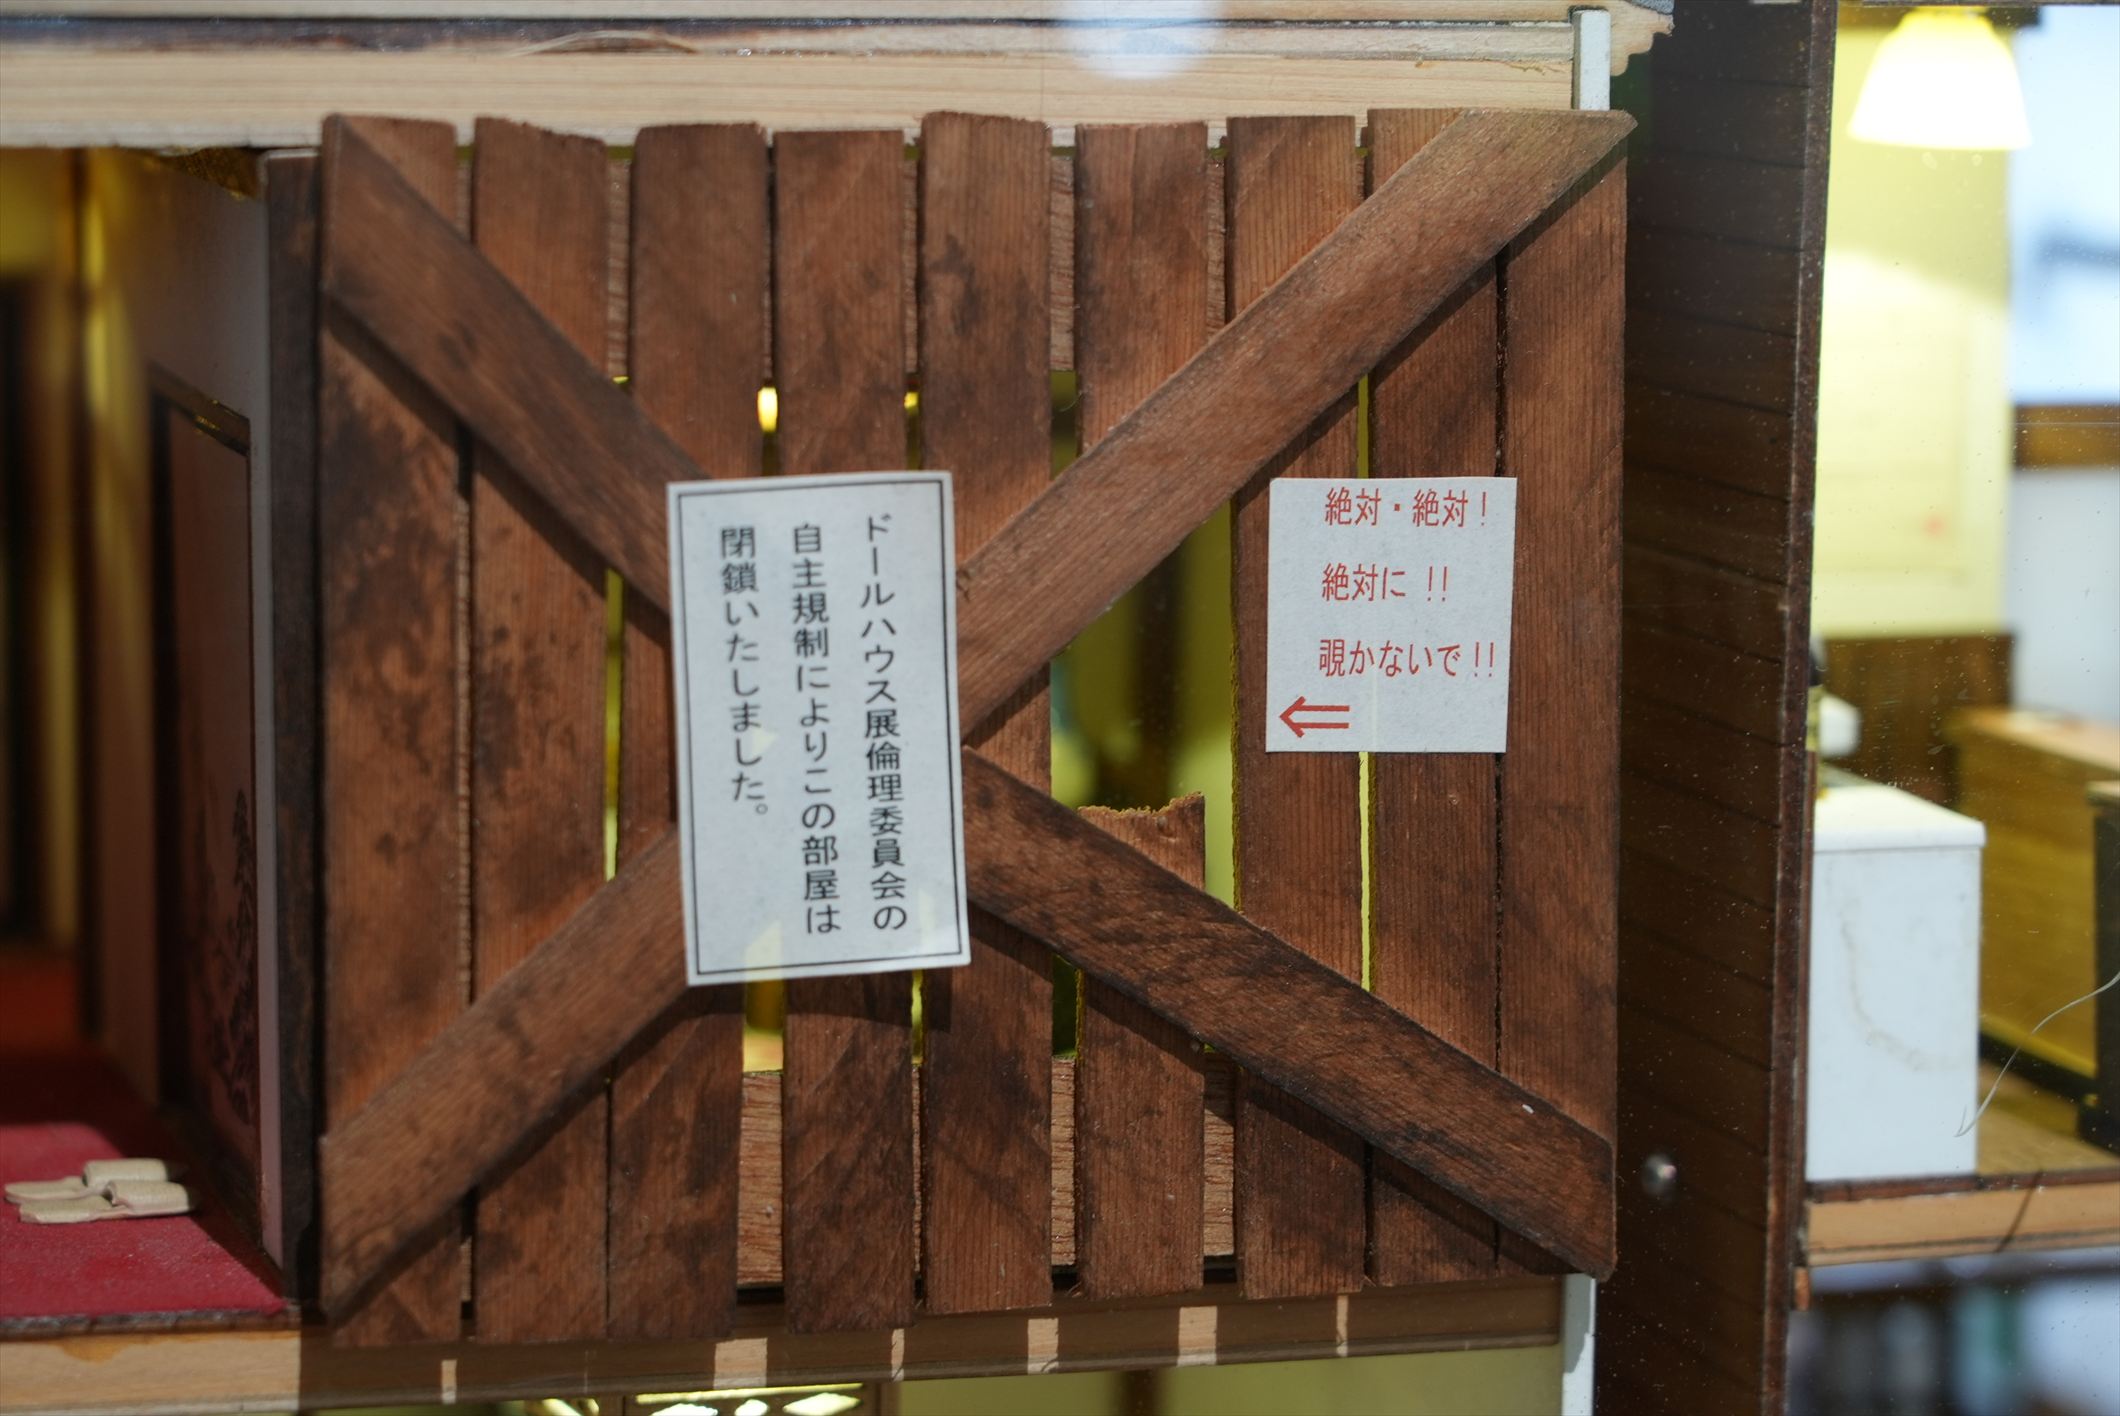 ドールハウス展倫理委員会の
自主規制によりこの部屋は
閉鎖いたしました。
絶対・絶対！
絶対に !!
覗かないで !!
⇐